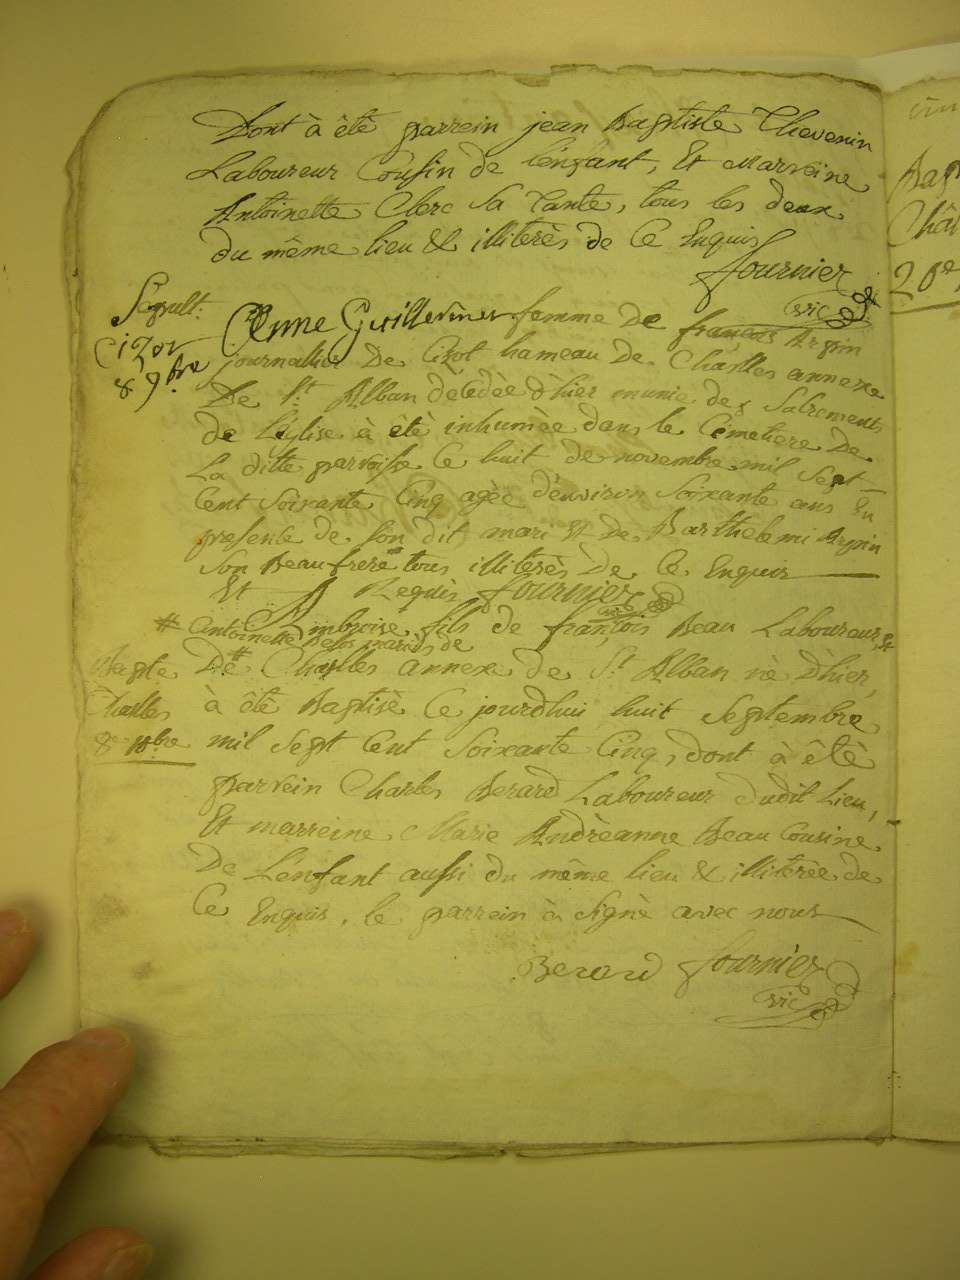 Dont à été parrein jean Baptiste Thevenin
Laboureur Cousin de l'enfant, Et Marreine
Antoinette Clerc Sa Tante, tous les deux
du même lieu & illiterès de Ce Enquis
fournier
vic
Sepult:
Cizor
8 9bre
Anne Guillermin femme De françois Arpin
journallier De Cizol hameau De Chasles annexe
De St. Alban décédée d'hier munie des Sacrements
de L'eglise à été inhumèe dans le Cémetiere De
La ditte parroisse Ce huit de novembre mil Sept
Cent Soixante Cinq agèe d'environ Soixante ans En
presence de Son dit mari Et De Barthelemi Arpin
Son Beaufrere tous illiterès De Ce Enquis
Et Requis fournier
vic
Ambroise fils de françois Beau Laboureur, &
# Antoinette mariès de
Bapte
Chasles
8e 9bre
De # Chasles annexe de St Alban né D'hier,
à été Baptisè Ce jourdhui huit Septembre
mil Sept Cent Soixante Cinq, dont à été
parrein Charles Berard Laboureur dudit Lieu,
Et marreine Marie Andrèanne Beau Cousine
De L'enfant aussi du même lieu & illiterèe de
Ce Enquis. le parrein à Signè avec nous
Berard fournier
vic
Bap
Châ
20e